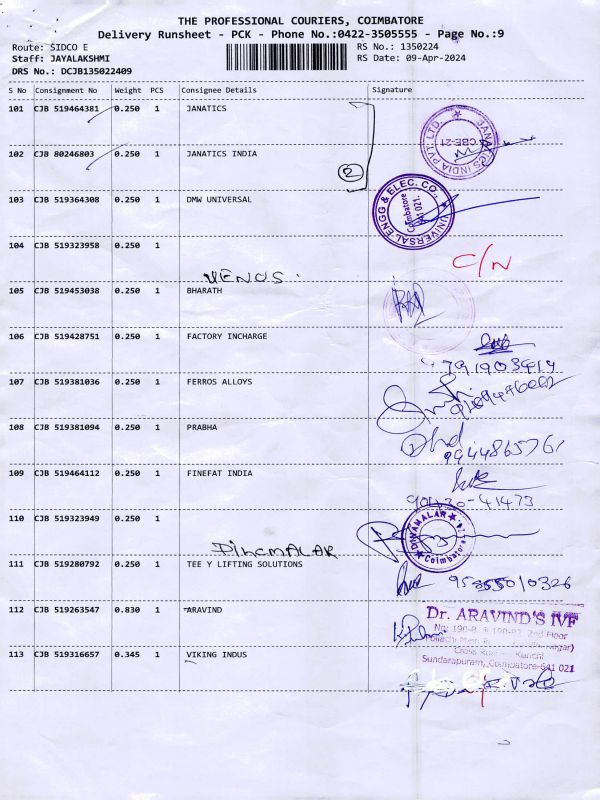 THE PROFESSIONAL COURIERS, COIMBATORE
Delivery Runsheet - PCK - Phone No.:0422-3505555 - Page No.:9
Route: SIDCO E
RS No.: 1350224
Staff: JAYALAKSHMI
RS Date: 09-Apr-2024
DRS No.: DCJB135022409
S No Consignment No Weight PCS Consignee Details Signature
101 CJB 519464381 0.250 1 JANATICS
JANATICS INDIA PVT. LTD. CBE-21
102 CJB 80246803 0.250 1 JANATICS INDIA
2
103 CJB 519364308 0.250 1 DMW UNIVERSAL
UNIVERSAL ENGG & ELEC. CO., Coimbatore 641 021.
104 CJB 519323958 0.250 1
VENUS.
C/N
105 CJB 519453038 0.250 1 BHARATH
106 CJB 519428751 0.250 1 FACTORY INCHARGE
7791903414
107 CJB 519381036 0.250 1 FERROS ALLOYS
108 CJB 519381094 0.250 1 PRABHA
9944865761
109 CJB 519464112 0.250 1 FINEFAT INDIA
90420-41473
110 CJB 519323949 0.250 1
DINAMALAR
DINAMALAR Coimbatore
111 CJB 519280792 0.250 1 TEE Y LIFTING SOLUTIONS
112 CJB 519263547 0.830 1 ARAVIND
Dr. ARAVIND'S IVF
2nd Floor
Sundarapuram, Coimbatore-641 021
113 CJB 519316657 0.345 1 VIKING INDUS